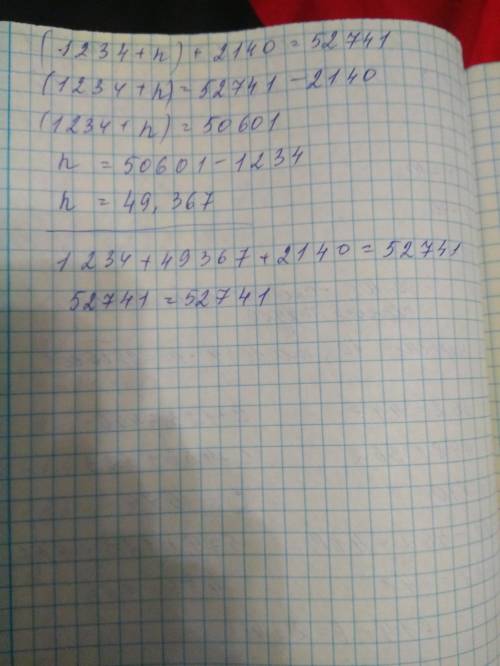 (1234+n)+2140=52741
(1234+n)=52741-2140
(1234+n)=50601
n=50601-1234
n=49,367
1234+49367+2140=52741
52741=52741